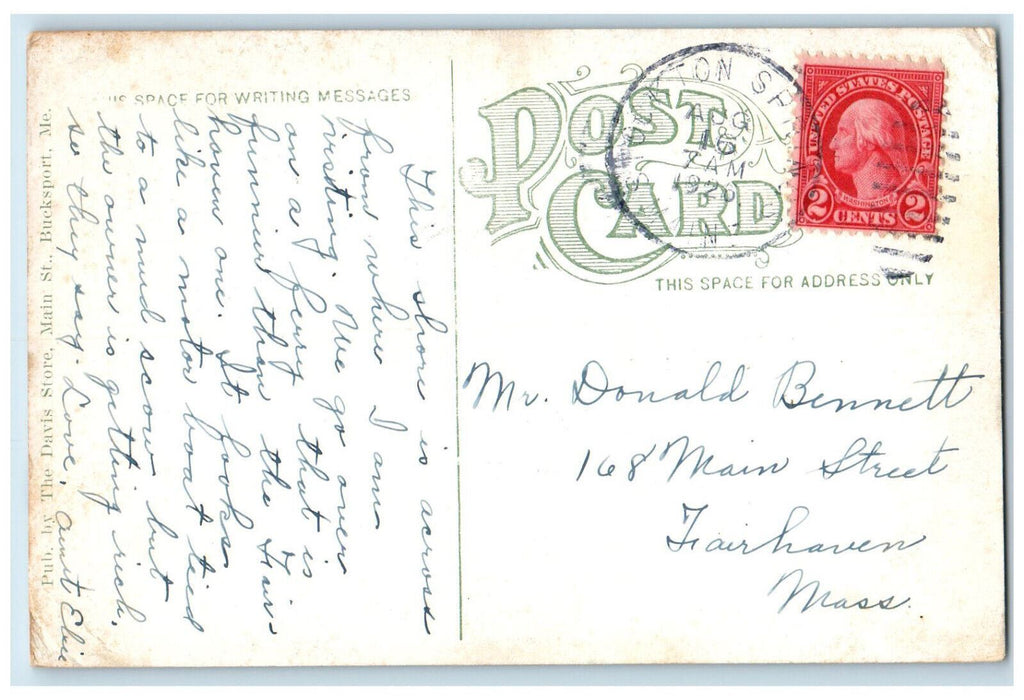 THIS SPACE FOR WRITING MESSAGES
Pub. by The Davis Store, Main St., Bucksport, Me.
This shore is across
from where I am
visiting. We go over
on a ferry that is
funnier than the Fair-
haven one. It looks
like a motor boat tied
to a mud scow but
the owner is getting rich.
so they say. Love, Aunt
POST
CARD
THIS SPACE FOR ADDRESS ONLY
AUG
16
7 AM
UNITED STATES POSTAGE
WASHINGTON
2 CENTS 2
Mr. Donald Bennett
168 Main Street
Fairhaven
Mass.